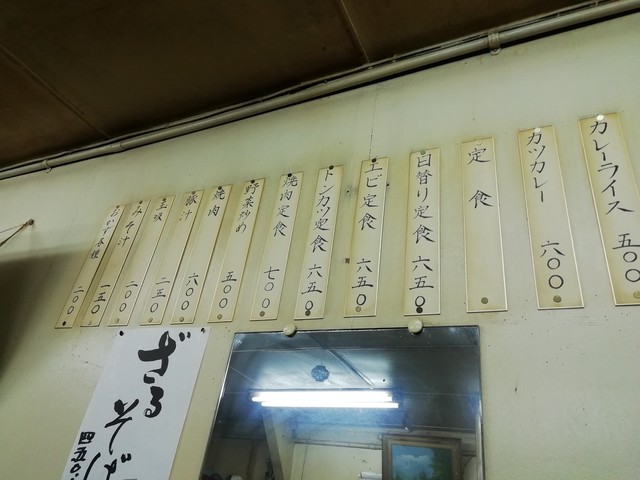 カレーライス 五〇〇
カツカレー 六〇〇
定食
日替り定食 六五〇
エビ定食 六五〇
トンカツ定食 六五〇
焼肉定食 七〇〇
野菜炒め 五〇〇
焼肉 六〇〇
豚汁 二五〇
二〇〇
みそ汁 一五〇
二〇〇
ざるそば
四五〇